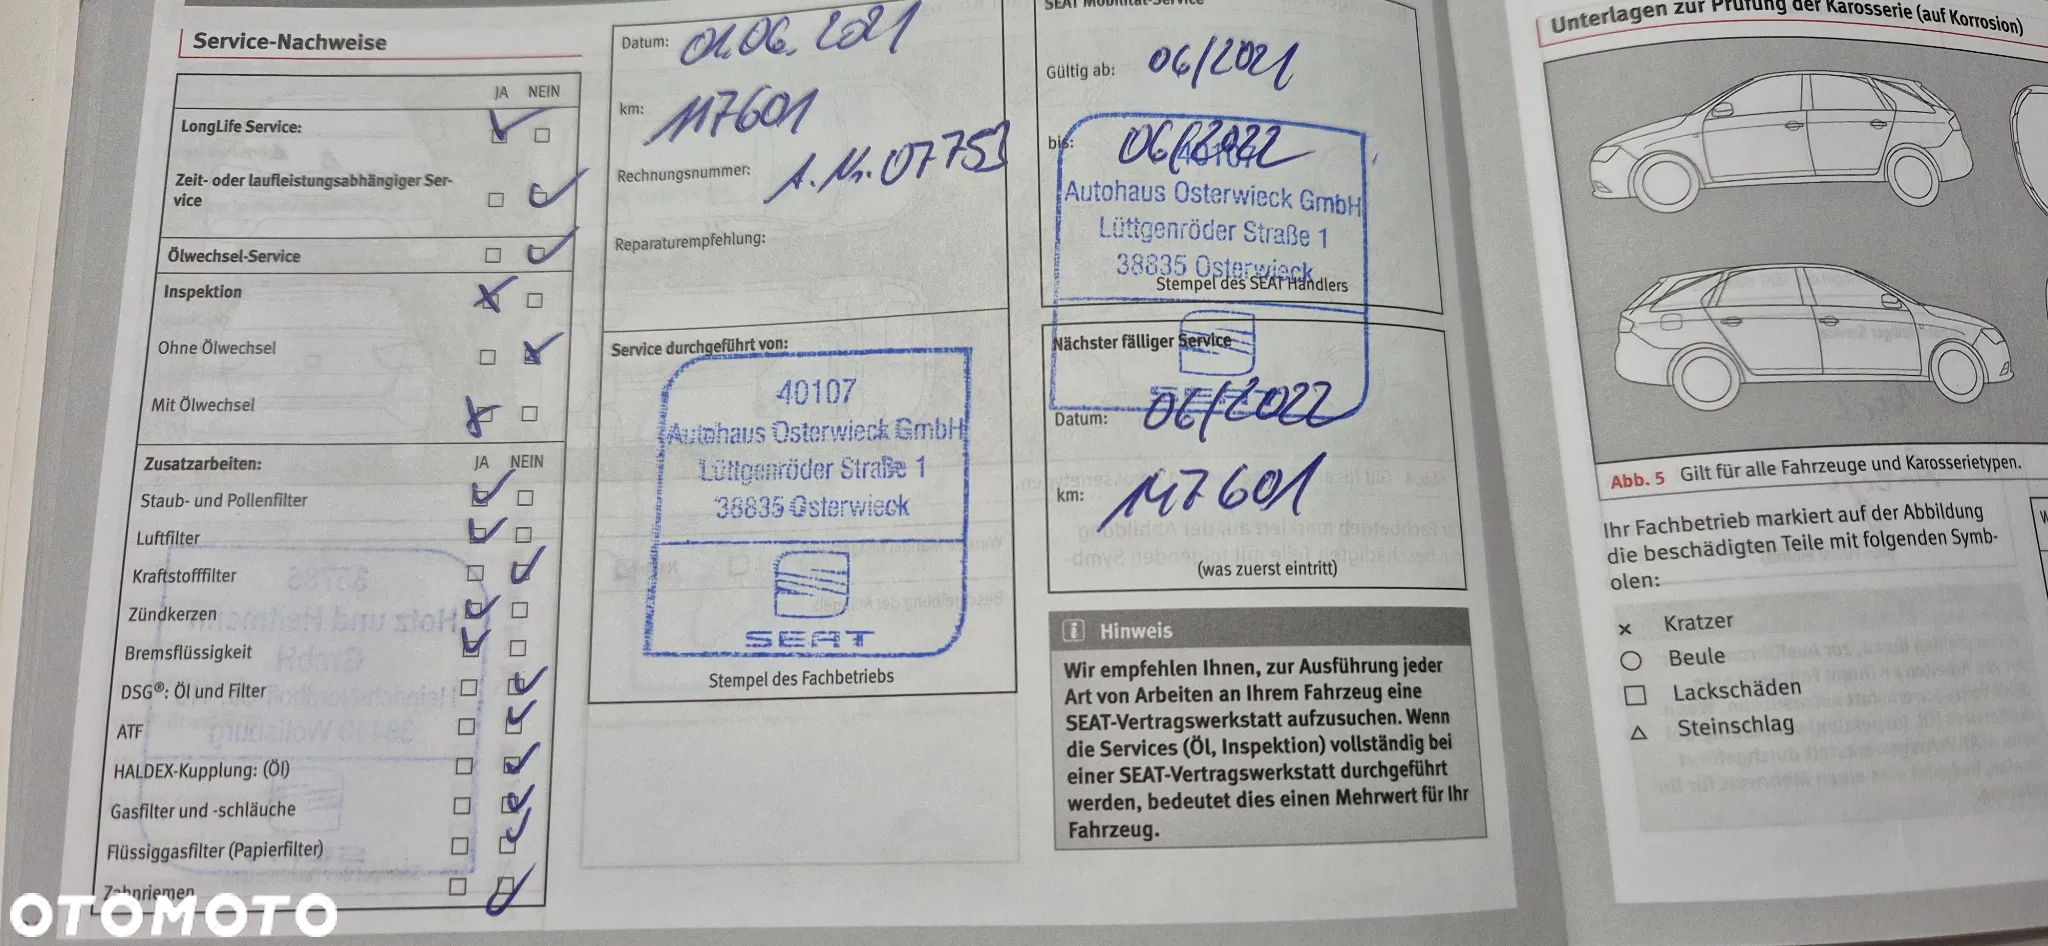 Service-Nachweise
JA NEIN
LongLife Service:
Zeit- oder laufleistungsabhängiger Ser-
vice
Ölwechsel-Service
Inspektion
Ohne Ölwechsel
Mit Ölwechsel
Zusatzarbeiten: JA NEIN
Staub- und Pollenfilter
Luftfilter
Kraftstofffilter
Zündkerzen
Bremsflüssigkeit
DSG®: Öl und Filter
ATF
HALDEX-Kupplung: (Öl)
Gasfilter und -schläuche
Flüssiggasfilter (Papierfilter)
Zahnriemen
Datum: 01.06.2021
km: 117601
Rechnungsnummer: A.Nr. 07753
Reparaturempfehlung:
Service durchgeführt von:
40107
Autohaus Osterwieck GmbH
Lüttgenröder Straße 1
38835 Osterwieck
SEAT
Stempel des Fachbetriebs
SEAT Mobilität-Service
Gültig ab: 06/2021
bis: 06/2022
40107
Autohaus Osterwieck GmbH
Lüttgenröder Straße 1
38835 Osterwieck
Stempel des SEAT Händlers
Nächster fälliger Service
SEAT
Datum: 06/2022
km: 147601
(was zuerst eintritt)
i Hinweis
Wir empfehlen Ihnen, zur Ausführung jeder
Art von Arbeiten an Ihrem Fahrzeug eine
SEAT-Vertragswerkstatt aufzusuchen. Wenn
die Services (Öl, Inspektion) vollständig bei
einer SEAT-Vertragswerkstatt durchgeführt
werden, bedeutet dies einen Mehrwert für Ihr
Fahrzeug.
Unterlagen zur Prüfung der Karosserie (auf Korrosion)
Abb. 5 Gilt für alle Fahrzeuge und Karosserietypen.
Ihr Fachbetrieb markiert auf der Abbildung
die beschädigten Teile mit folgenden Symb-
olen:
Kratzer
Beule
Lackschäden
Steinschlag
OTOMOTO